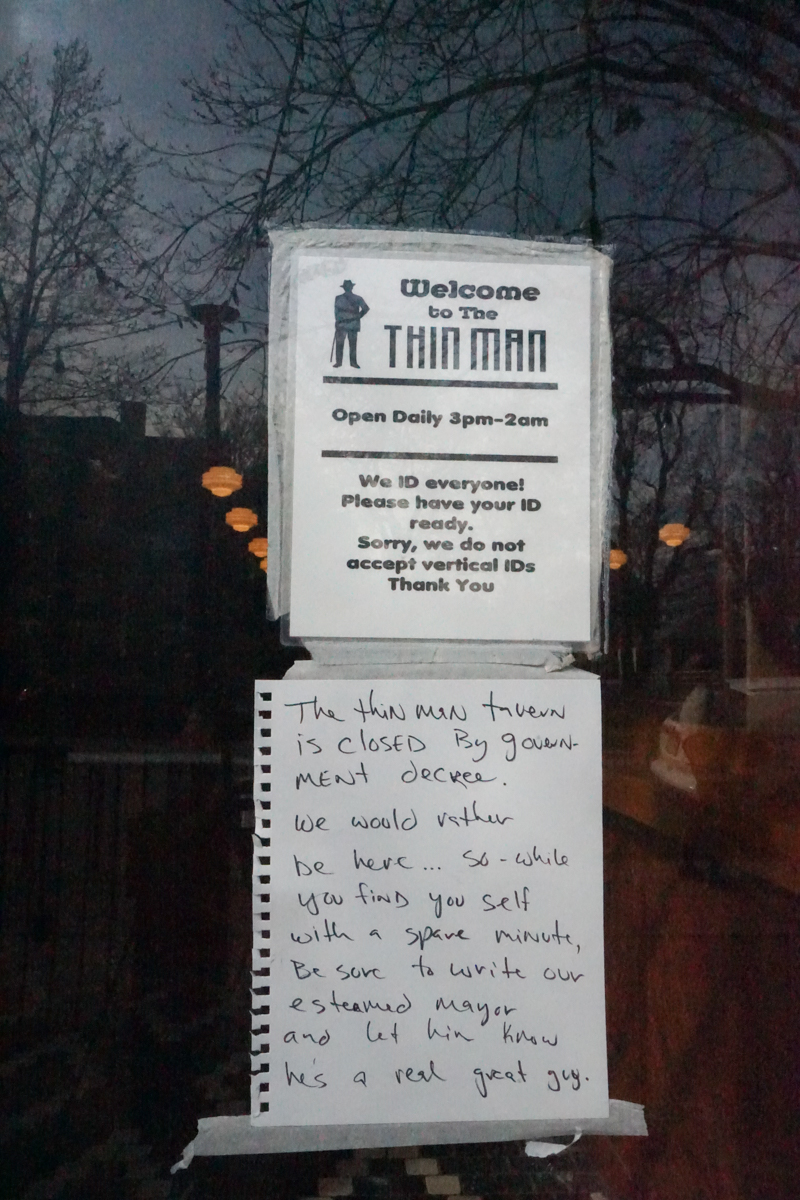 Welcome
to The
THIN MAN
Open Daily 3pm-2am
We ID everyone!
Please have your ID
ready.
Sorry, we do not
accept vertical IDs
Thank You
The thin man tavern
is closed By govern-
ment decree.
we would rather
be here... so - while
you find you self
with a spare minute,
Be sure to write our
esteemed mayor
and let him know
he's a real great guy.